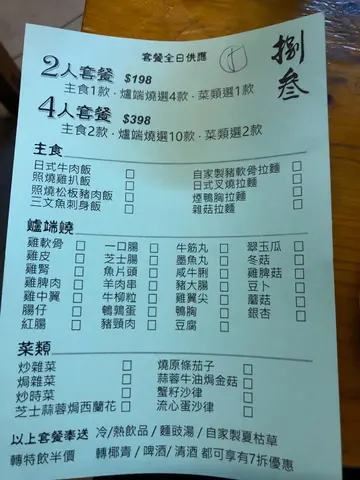 套餐全日供應
捌叁
2人套餐 $198
主食1款·爐端燒選4款·菜類選1款
4人套餐 $398
主食2款·爐端燒選10款·菜類選2款
主食
日式牛肉飯 □ 自家製豬軟骨拉麵 □
照燒雞扒飯 □ 日式叉燒拉麵 □
照燒松板豬肉飯 □ 煙鴨胸拉麵 □
三文魚刺身飯 □ 雜菇拉麵 □
爐端燒
雞軟骨 □ 一口腸 □ 牛筋丸 □ 翠玉瓜 □
雞皮 □ 芝士腸 □ 墨魚丸 □ 冬菇 □
雞腎 □ 魚片頭 □ 咸牛脷 □ 雞脾菇 □
雞脾肉 □ 羊肉串 □ 豬大腸 □ 豆卜 □
雞中翼 □ 牛柳粒 □ 雞翼尖 □ 蘑菇 □
腸仔 □ 鵪鶉蛋 □ 鴨胸 □ 銀杏 □
紅腸 □ 豬頸肉 □ 豆腐 □
菜類
炒雜菜 □ 燒原條茄子 □
焗雜菜 □ 蒜蓉牛油焗金菇 □
炒時菜 □ 蟹籽沙律 □
芝士蒜蓉焗西蘭花 □ 流心蛋沙律 □
以上套餐奉送 冷/熱飲品 / 麵豉湯 / 自家製夏枯草
轉特飲半價 轉椰青 / 啤酒/ 清酒 都可享有7折優惠